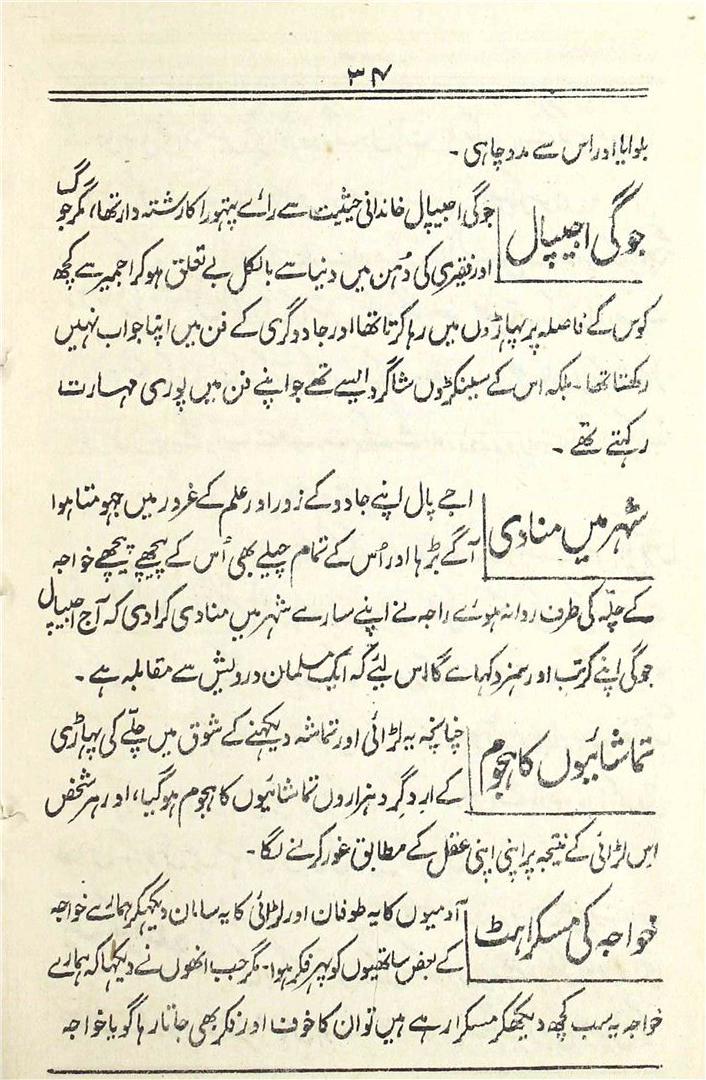 ۳۴
بلوایا اور اس سے مدد چاہی ۔
جوگی اجیپال
جوگی اجیپال خاندانی حیثیت سے رائے پتہورا کا رشتہ دار تھا، مگر جوگ
اور فقیری کی دُہن میں دنیا سے بالکل بے تعلق ہو کر اجمیر سے کچھ
کوس کے فاصلہ پر پہاڑوں میں رہا کرتا تھا اور جادوگری کے فن میں اپنا جواب نہیں
رکھتا تھا ۔ بلکہ اس کے سینکڑوں شاگرد ایسے تھے جو اپنے فن میں پوری مہارت
رکہتے تھے ۔
شہر میں منادی
اجے پال اپنے جادو کے زور اور علم کے غرور میں جہومتا ہوا
آگے بڑہا اور اُس کے تمام چیلے بھی اُس کے پیچھے پیچھے خواجہ
کے چلّہ کی طرف روانہ ہوئے راجہ نے اپنے سارے شہر میں منادی کرا دی کہ آج اجیپال
جوگی اپنے کرتب اور ہنر دکہائے گا اس لیئے کہ ایک مسلمان درویش سے مقابلہ ہے ۔
تماشائیوں کا ہجوم
چنانچہ یہ لڑائی اور تماشہ دیکہنے کے شوق میں چلّے کی پہاڑی
کے ارد گرد ہزاروں تماشائیوں کا ہجوم ہوگیا، اور ہر شخص
اس لڑائی کے نتیجہ پر اپنی اپنی عقل کے مطابق غور کرنے لگا ۔
خواجہ کی مسکراہٹ
آدمیوں کا یہ طوفان اور لڑائی کا یہ سامان دیکہکر ہمارے خواجہ
کے بعض ساتھیوں کو پہر فکر ہوا ۔ مگر جب انھوں نے دیکہا کہ ہمارے
خواجہ یہ سب کچھ دیکھکر مسکرا رہے ہیں تو ان کا خوف اور فکر بھی جاتا رہا گویا خواجہ